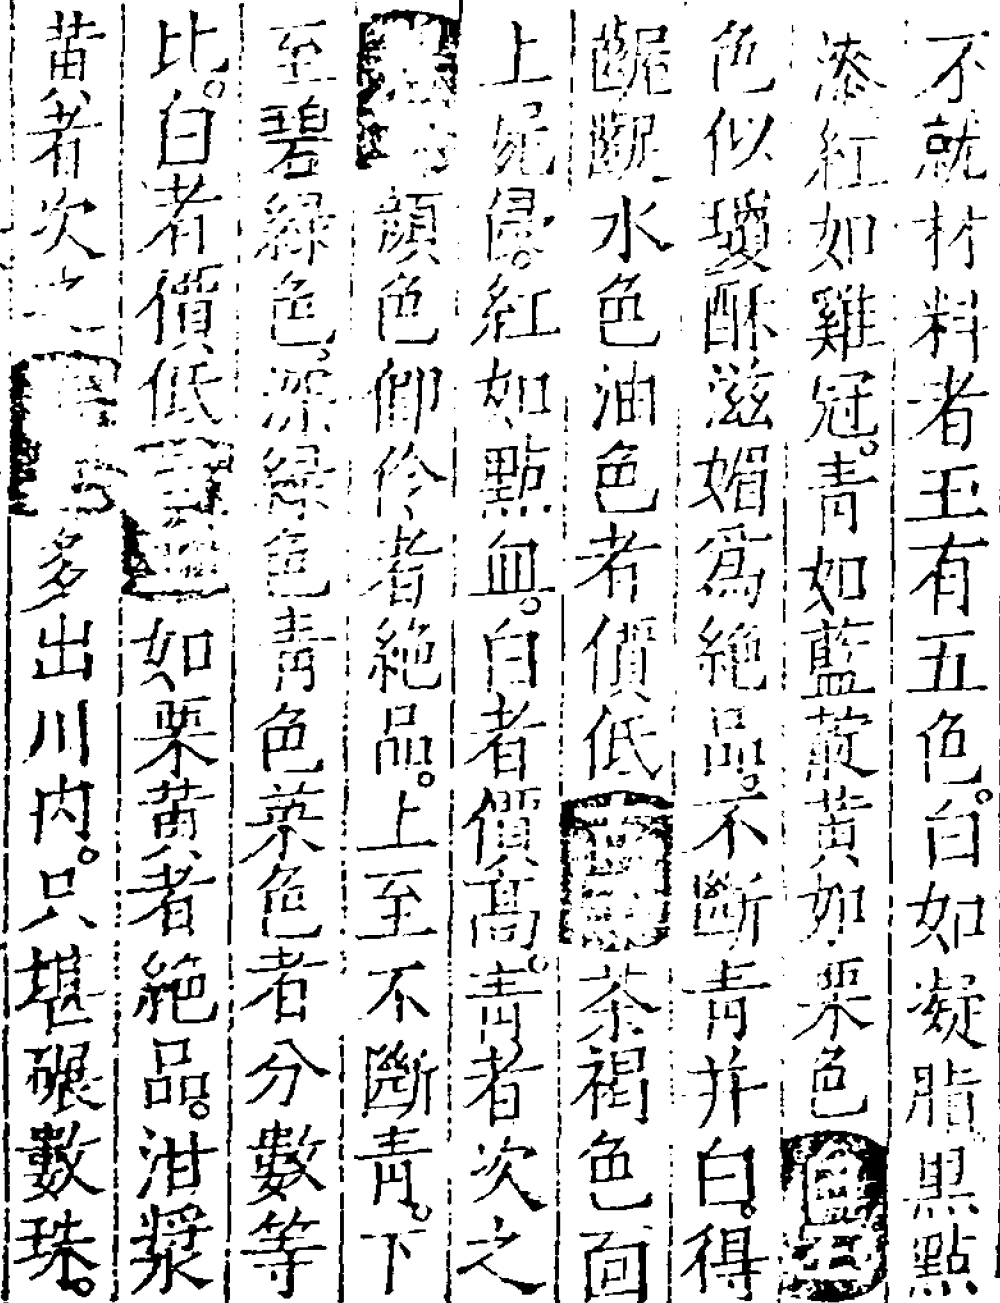 不就材料者玉有五色。白如凝脂黑點
漆紅如雞冠。青如藍靛黃如栗色
色似瓊酥滋媚為絶品。不斷青并白。得
水色油色者價低 茶褐色面
上 侵。紅如點血。白者價高。青者次之
顔色 伶者絶品。上至不斷青。下
至碧緑色。深緑色青色菜色者分數等
比。白者價低 如栗黄者絶品。泔漿
黄者次之 多出川内。只堪碾數珠。